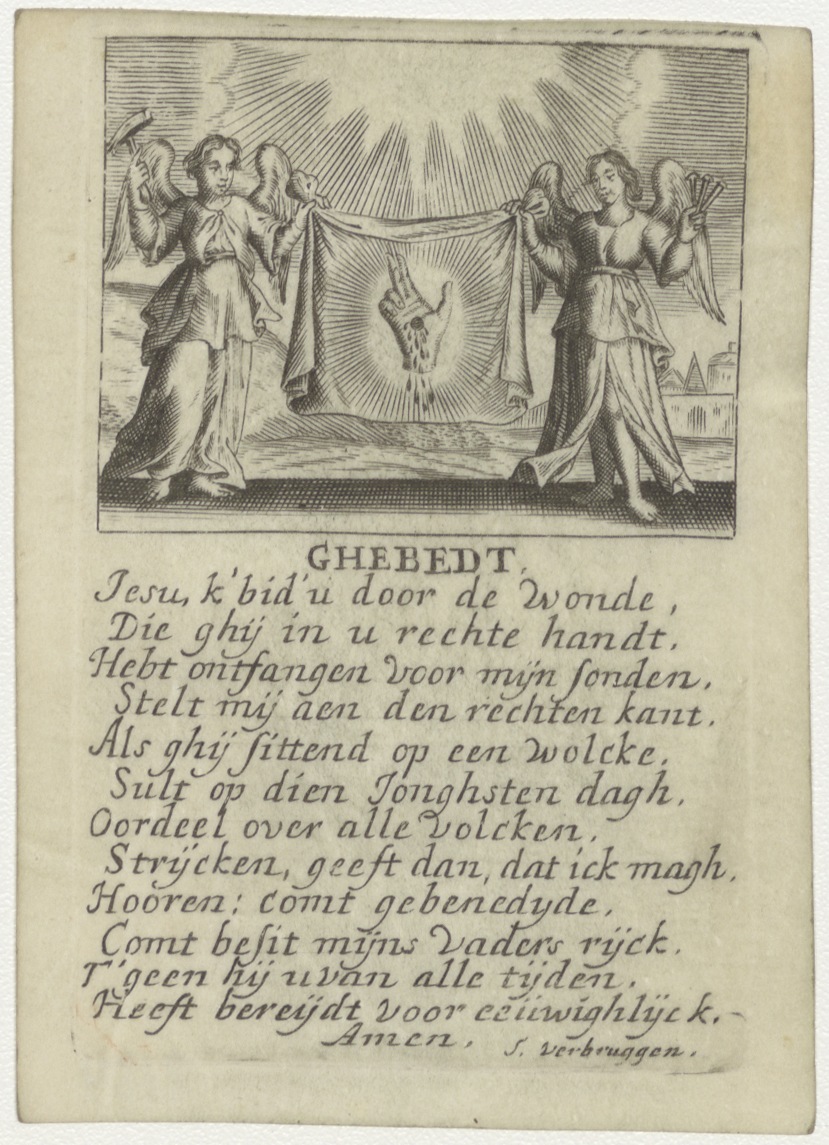 GHEBEDT.
Jesu, k'bid'u door de wonde,
Die ghij in u rechte handt.
Hebt ontfangen voor mijn sonden.
Stelt mij aen den rechten kant.
Als ghij sittend op een wolcke.
Sult op dien Jonghsten dagh.
Oordeel over alle volcken.
Strijcken, geeft dan, dat ick magh.
Hooren: comt gebenedyde.
Comt besit mijns vaders rijck.
T'geen hij u van alle tijden.
Heeft bereijdt voor eeüwighlijck.-
Amen.
S. verbruggen.